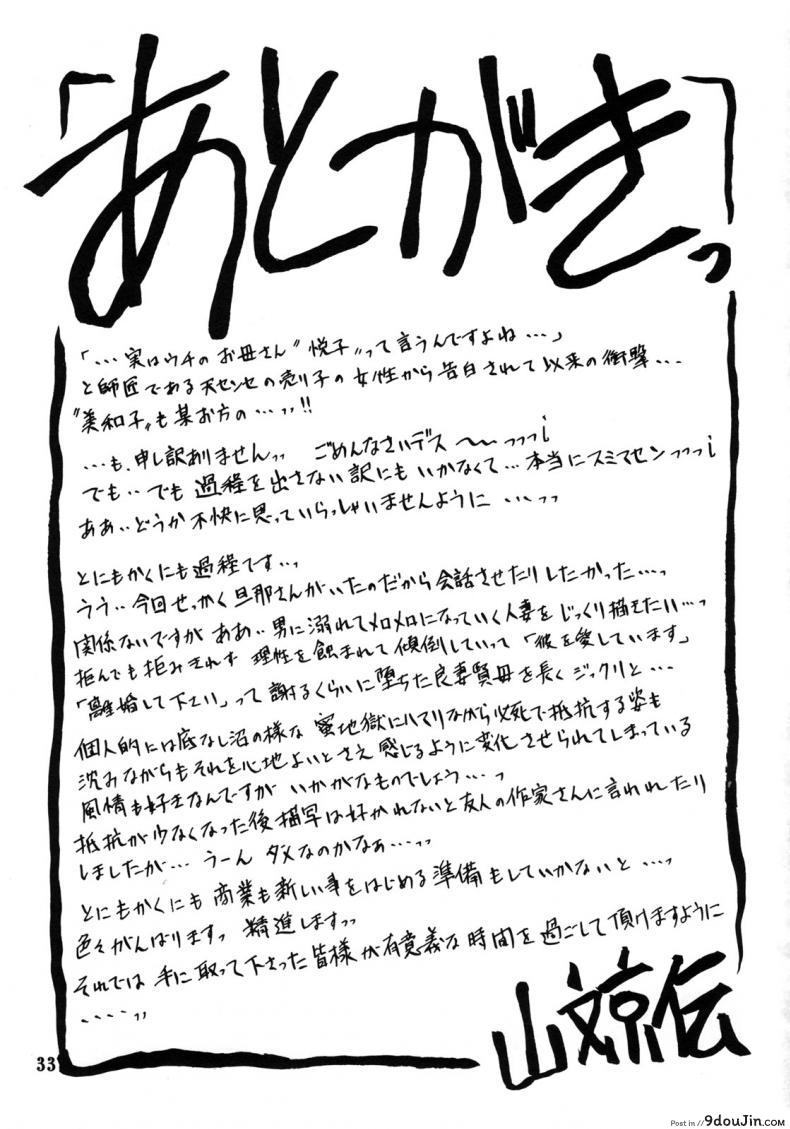 「あとがきっ」
「…実はウチのお母さん〝悦子〟って言うんですよね…」
と師匠である天センセの売り子の女性から告白されて以来の衝撃…
〝美和子〟も某お方の…ッッ!!
…も、申し訳ありませんッッ ごめんなさいデス〜〜ッッッ¡
でも‥でも過程を出さない訳にもいかなくて…本当にスミマセンッッッ¡
ああ‥どうか不快に思っていらっしゃいませんように…ッッ
とにもかくにも過程です…っ
うう‥今回せっかく旦那さんがいたのだから会話させたりしたかった…っ
関係ないですが ああ‥男に溺れてメロメロになっていく人妻をじっくり描きたい…っ
拒んでも拒みきれず 理性を蝕まれて傾倒していって「彼を愛しています」
「離婚して下さい」って謝るくらいに堕ちた良妻賢母を長くジックリと…
個人的には底なし沼の様な蜜地獄にハマりながら必死で抵抗する姿も
沈みながらもそれを心地よいとさえ感じるように変化させられてしまっている
風情も好きなんですが いかがなものでしょう…っ
抵抗が少なくなった後描写は好かれないと友人の作家さんに言われたり
しましたが… うーん ダメなのかなぁ…ッッ
とにもかくにも商業も新しい事をはじめる準備もしていかないと…っ
色々がんばりますっ 精進しますッッ
それでは 手に取って下さった皆様が有意義な時間を過ごして頂けますように
‥‥ッッ
山文京伝
33
Post in // 9douJin.com